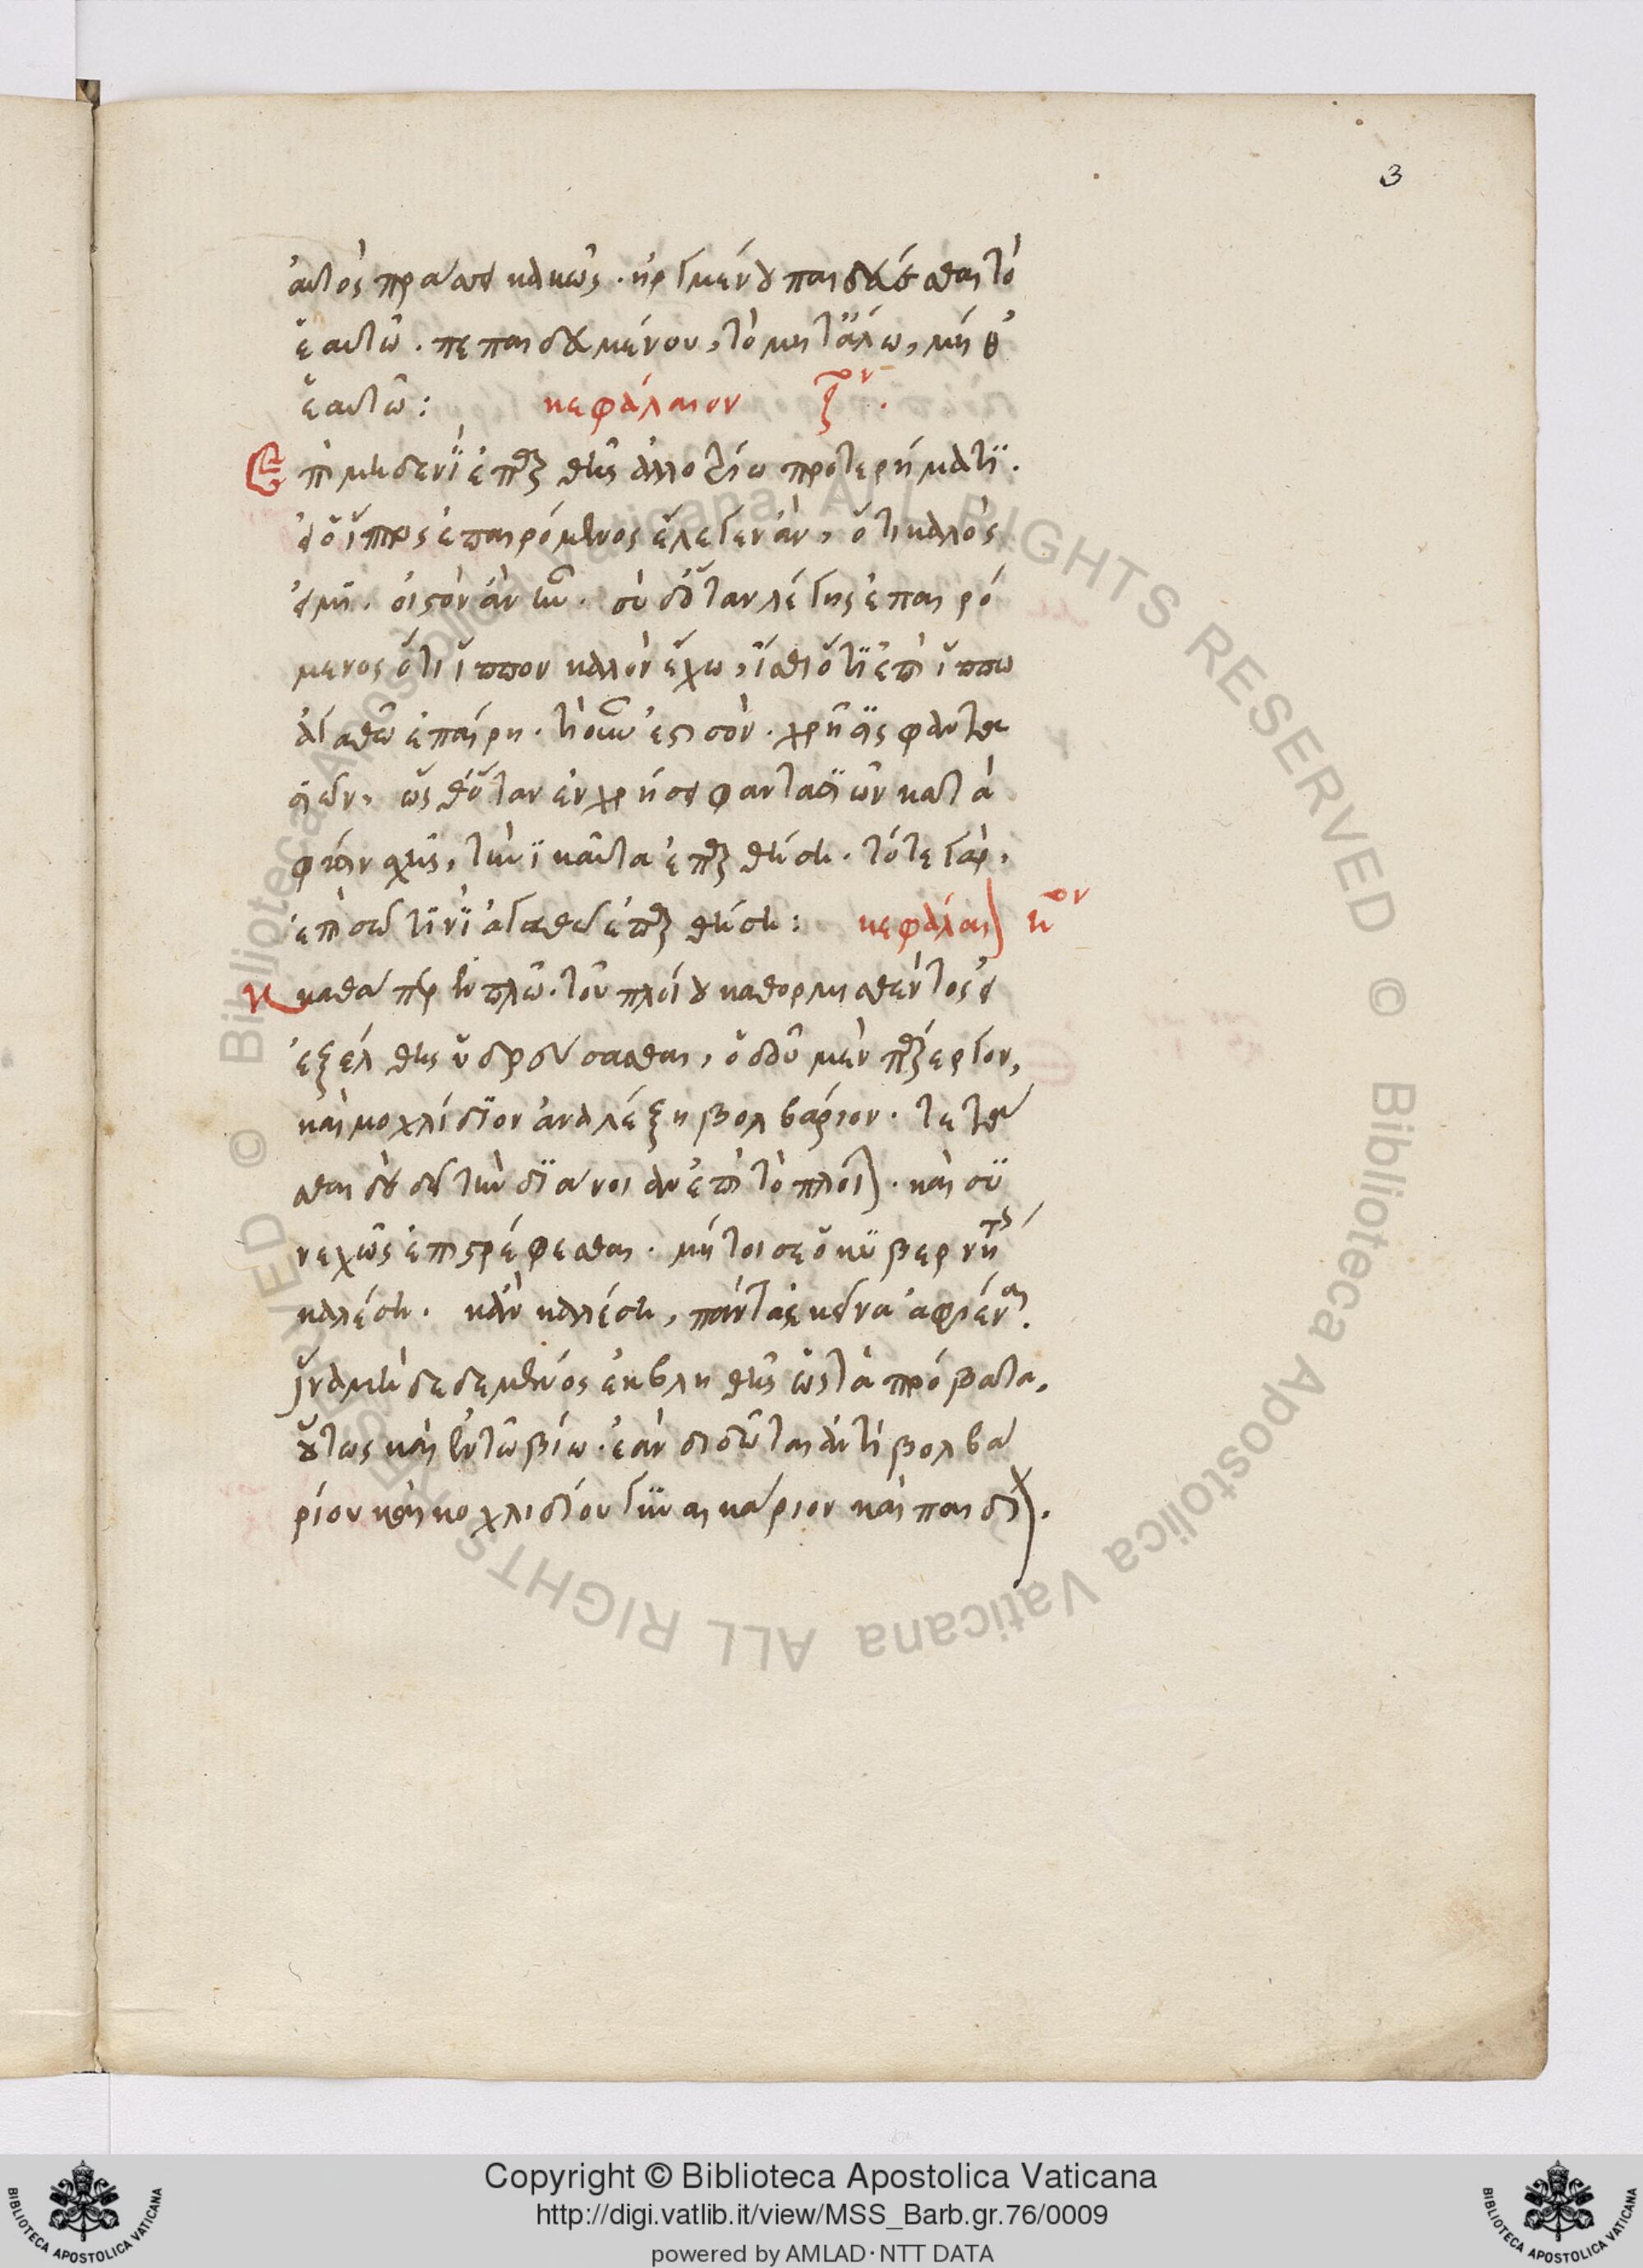 3
αὐτὸς πράσσει κακῶς. ἠργμένου παιδεύεσθαι τὸ
ἑαυτῶ. πεπαιδευμένου, τὸ μήτ' ἄλλω, μήθ'
ἑαυτῶ: κεφάλαιον ζον.
Ἐπὶ μηδενὶ ἐπαρθῆς ἀλλοτρίω προτερήματι.
εἰ ὁ ἵππος ἐπαιρόμενος ἔλεγεν ἂν, ὅτι καλὸς
εἰμι. οἰστὸν ἂν ἦν. σὺ δ' ὅταν λέγης ἐπαιρό
μενος ὅτι ἵππον καλὸν ἔχω, ἴσθι ὅτι ἐπὶ ἵππω
ἀγαθῶ ἐπαίρη. τί οὖν ἐστι σόν. χρῆσις φαντα
σιῶν, ὥσθ' ὅταν ἐν χρήσει φαντασιῶν κατὰ
φύσιν σχῆς, τηνικαῦτα ἐπάρθητι. τότε γὰρ,
ἐπὶ σῶ τινὶ ἀγαθῶ ἐπαρθήση: κεφάλαιον ηον
Καθάπερ ἐν πλῶ. τοῦ πλοίου καθορμισθέντος εἰ
ἐξέλθης ὑδρεύσασθαι, ὁδοῦ μὲν πάρεργον,
καὶ κοχλίδιον ἀναλέξη βολβάριον. τετά
σθαι δὲ δεῖ τὴν διάνοιαν ἐπὶ τὸ πλοῖον. καὶ συ
νεχῶς ἐπιστρέφεσθαι. μή τοι σε ὁ κυβερνήτης
καλέση. κἂν καλέση, πάντα ἐκεῖνα ἀφιέναι.
ἵνα μὴ δεδεμένος ἐκβληθῆς ὡς τὰ πρόβατα,
οὕτως καὶ ἐν τῶ βίω. ἐὰν διδῶται ἀντὶ βολβα
ρίου καὶ κοχλιδίου γυναικάριον καὶ παιδίον.
Copyright © Biblioteca Apostolica Vaticana
http://digi.vatlib.it/view/MSS_Barb.gr.76/0009
powered by AMLAD·NTT DATA